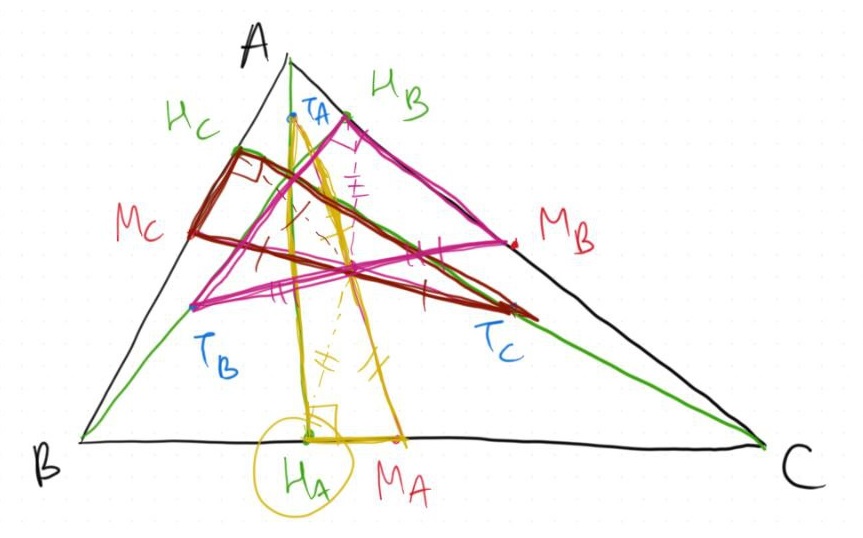 A
H_B
T_A
H_C
M_C
M_B
T_B
T_C
B
H_A
M_A
C